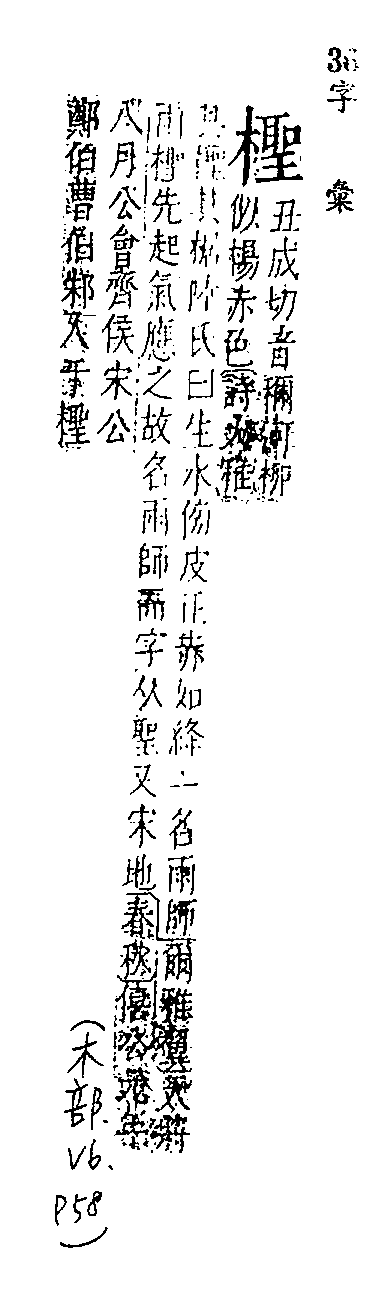 36字 彙
檉
丑成切音穪河柳
似楊赤色詩大雅
其檉其椐陸氏曰生水傍皮正赤如絳一名雨師爾雅翼天將
雨檉先起氣應之故名雨師而字从聖又宋地春秋僖公元年
八月公會齊侯宋公
鄭伯曹伯邾人于檉
(木部.
V6.
P58)